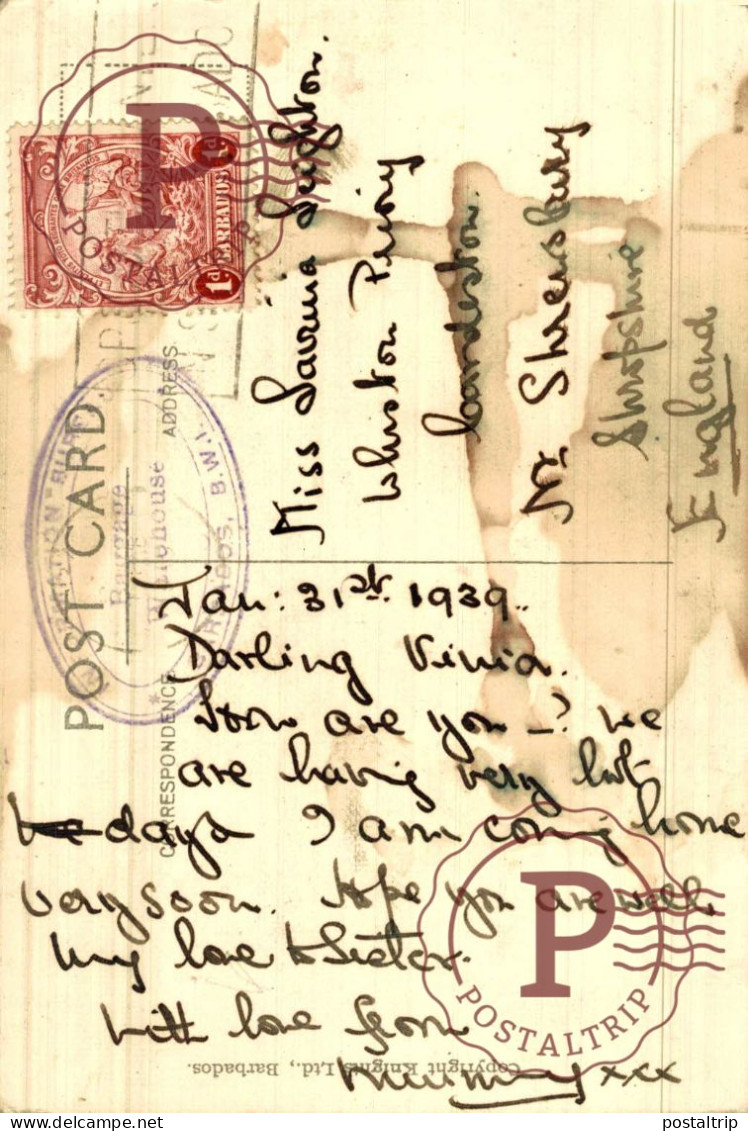 POST CARD
CORRESPONDENCE
ADDRESS
BARBADOS
1d
1d
BARBADOS, B.W.I.
Miss Lavinia Leighton.
Priory
Cardeston.
Nr. Shrewsbury
Shropshire
England
Jan: 31st. 1939.
Darling Vinia.
How are you _? We
are having very hot
days I am coming home
very soon. Hope you are well
My love to Sister.
With love from
Mummy xxx
Copyright Knights Ltd., Barbados.
P
POSTALTRIP
P
POSTALTRIP
postaltrip
delcampe.net